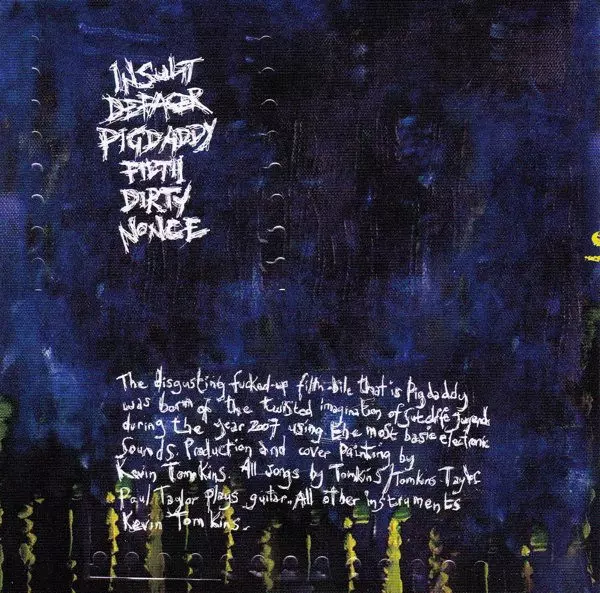 INSULT
DEFACER
PIGDADDY
FILTH
DIRTY
NONCE
The disgusting fucked-up filth-bile that is Pigdaddy
was born of the twisted imagination of Sutcliffe Jugend
during the year 2007 using the most basic electronic
sounds. Production and cover painting by
Kevin Tomkins. All songs by Tomkins/Tomkins Taylor
Paul Taylor plays guitar. All other instruments
Kevin Tomkins.